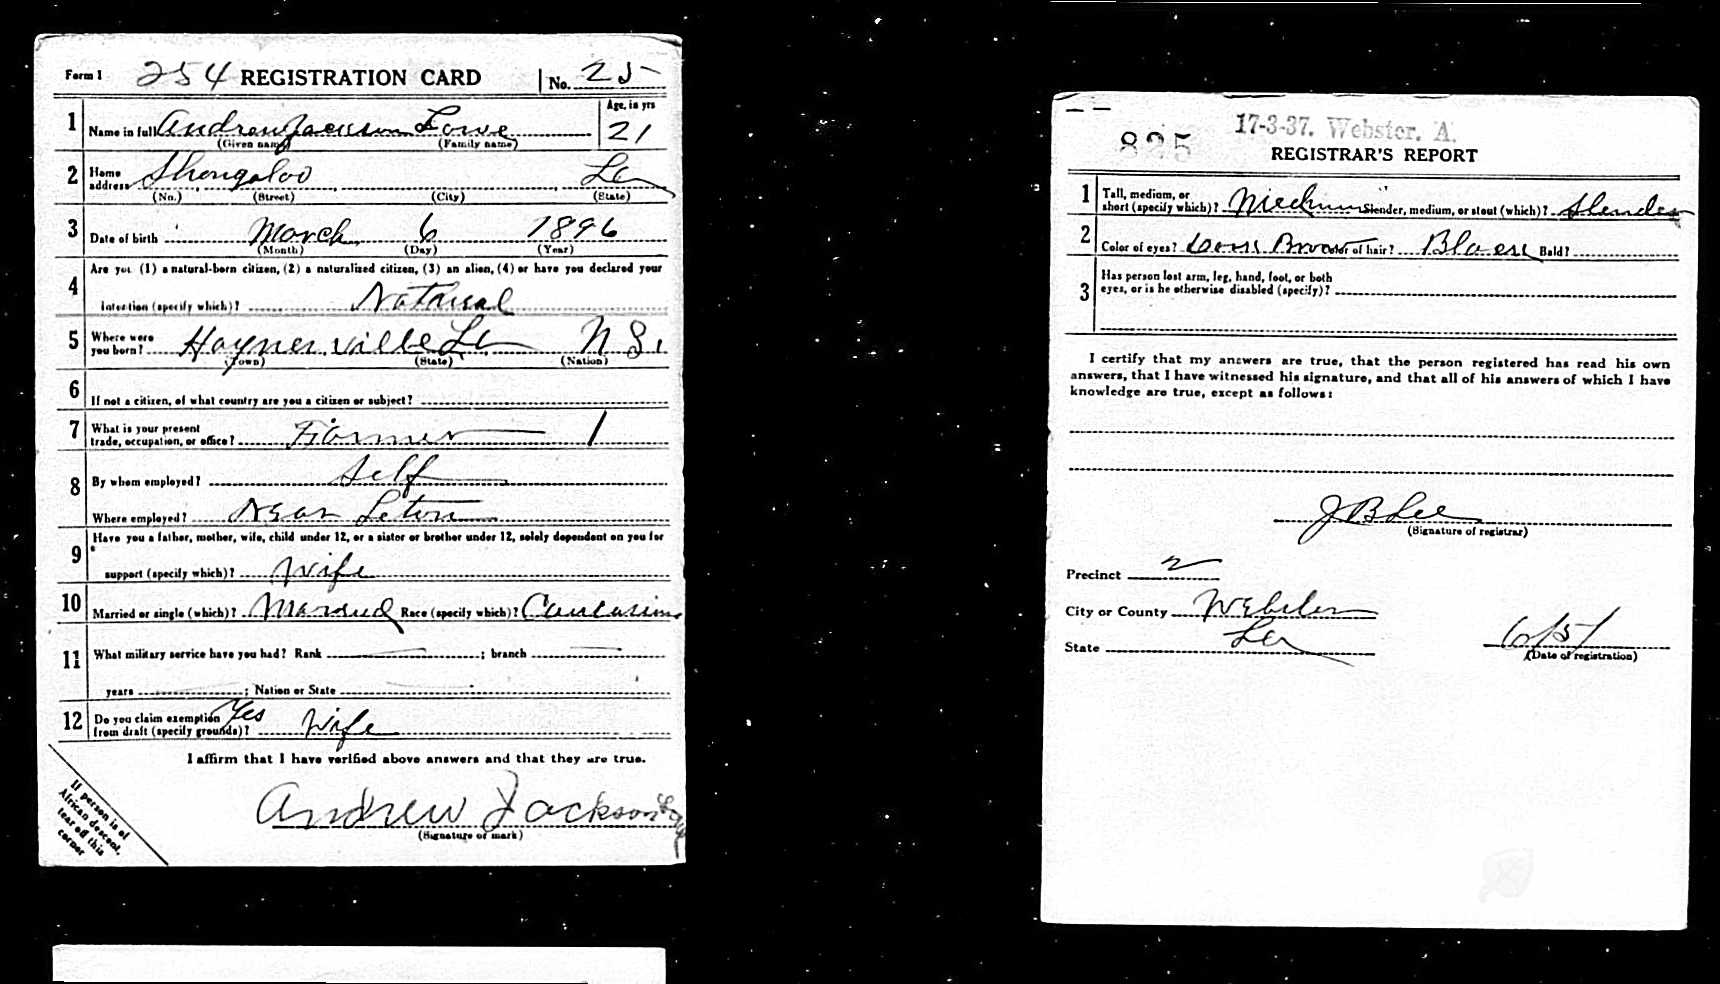 Form 1 254 REGISTRATION CARD No. 25
Age, in yrs
1 Name in full Andrew Jackson Lowe 21
(Given name) (Family name)
2 Home address Shongaloo La
(No.) (Street) (City) (State)
3 Date of birth March 6 1896
(Month) (Day) (Year)
4 Are you (1) a natural-born citizen, (2) a naturalized citizen, (3) an alien, (4) or have you declared your
intention (specify which)? Natural
5 Where were you born? Haynesville La
(Town) (State) (Nation)
6 If not a citizen, of what country are you a citizen or subject?
7 What is your present trade, occupation, or office? Farmer 1
8 By whom employed? Self
Where employed? Near Leton
9 Have you a father, mother, wife, child under 12, or a sister or brother under 12, solely dependent on you for
support (specify which)? Wife
10 Married or single (which)? Married Race (specify which)? Caucasian
11 What military service have you had? Rank ; branch
years ; Nation or State
12 Do you claim exemption from draft (specify grounds)? Yes Wife
I affirm that I have verified above answers and that they are true.
Andrew Jackson Lowe
(Signature or mark)
If person is of
African descent,
tear off this
corner
835 17-3-37. Webster. A.
REGISTRAR'S REPORT
1 Tall, medium, or short (specify which)? Medium Slender, medium, or stout (which)? Slender
2 Color of eyes? Brown Color of hair? Black Bald?
3 Has person lost arm, leg, hand, foot, or both
eyes, or is he otherwise disabled (specify)?
I certify that my answers are true, that the person registered has read his own
answers, that I have witnessed his signature, and that all of his answers of which I have
knowledge are true, except as follows:
J B Lee
(Signature of registrar)
Precinct 2
City or County Webster
State La 6/5/
(Date of registration)